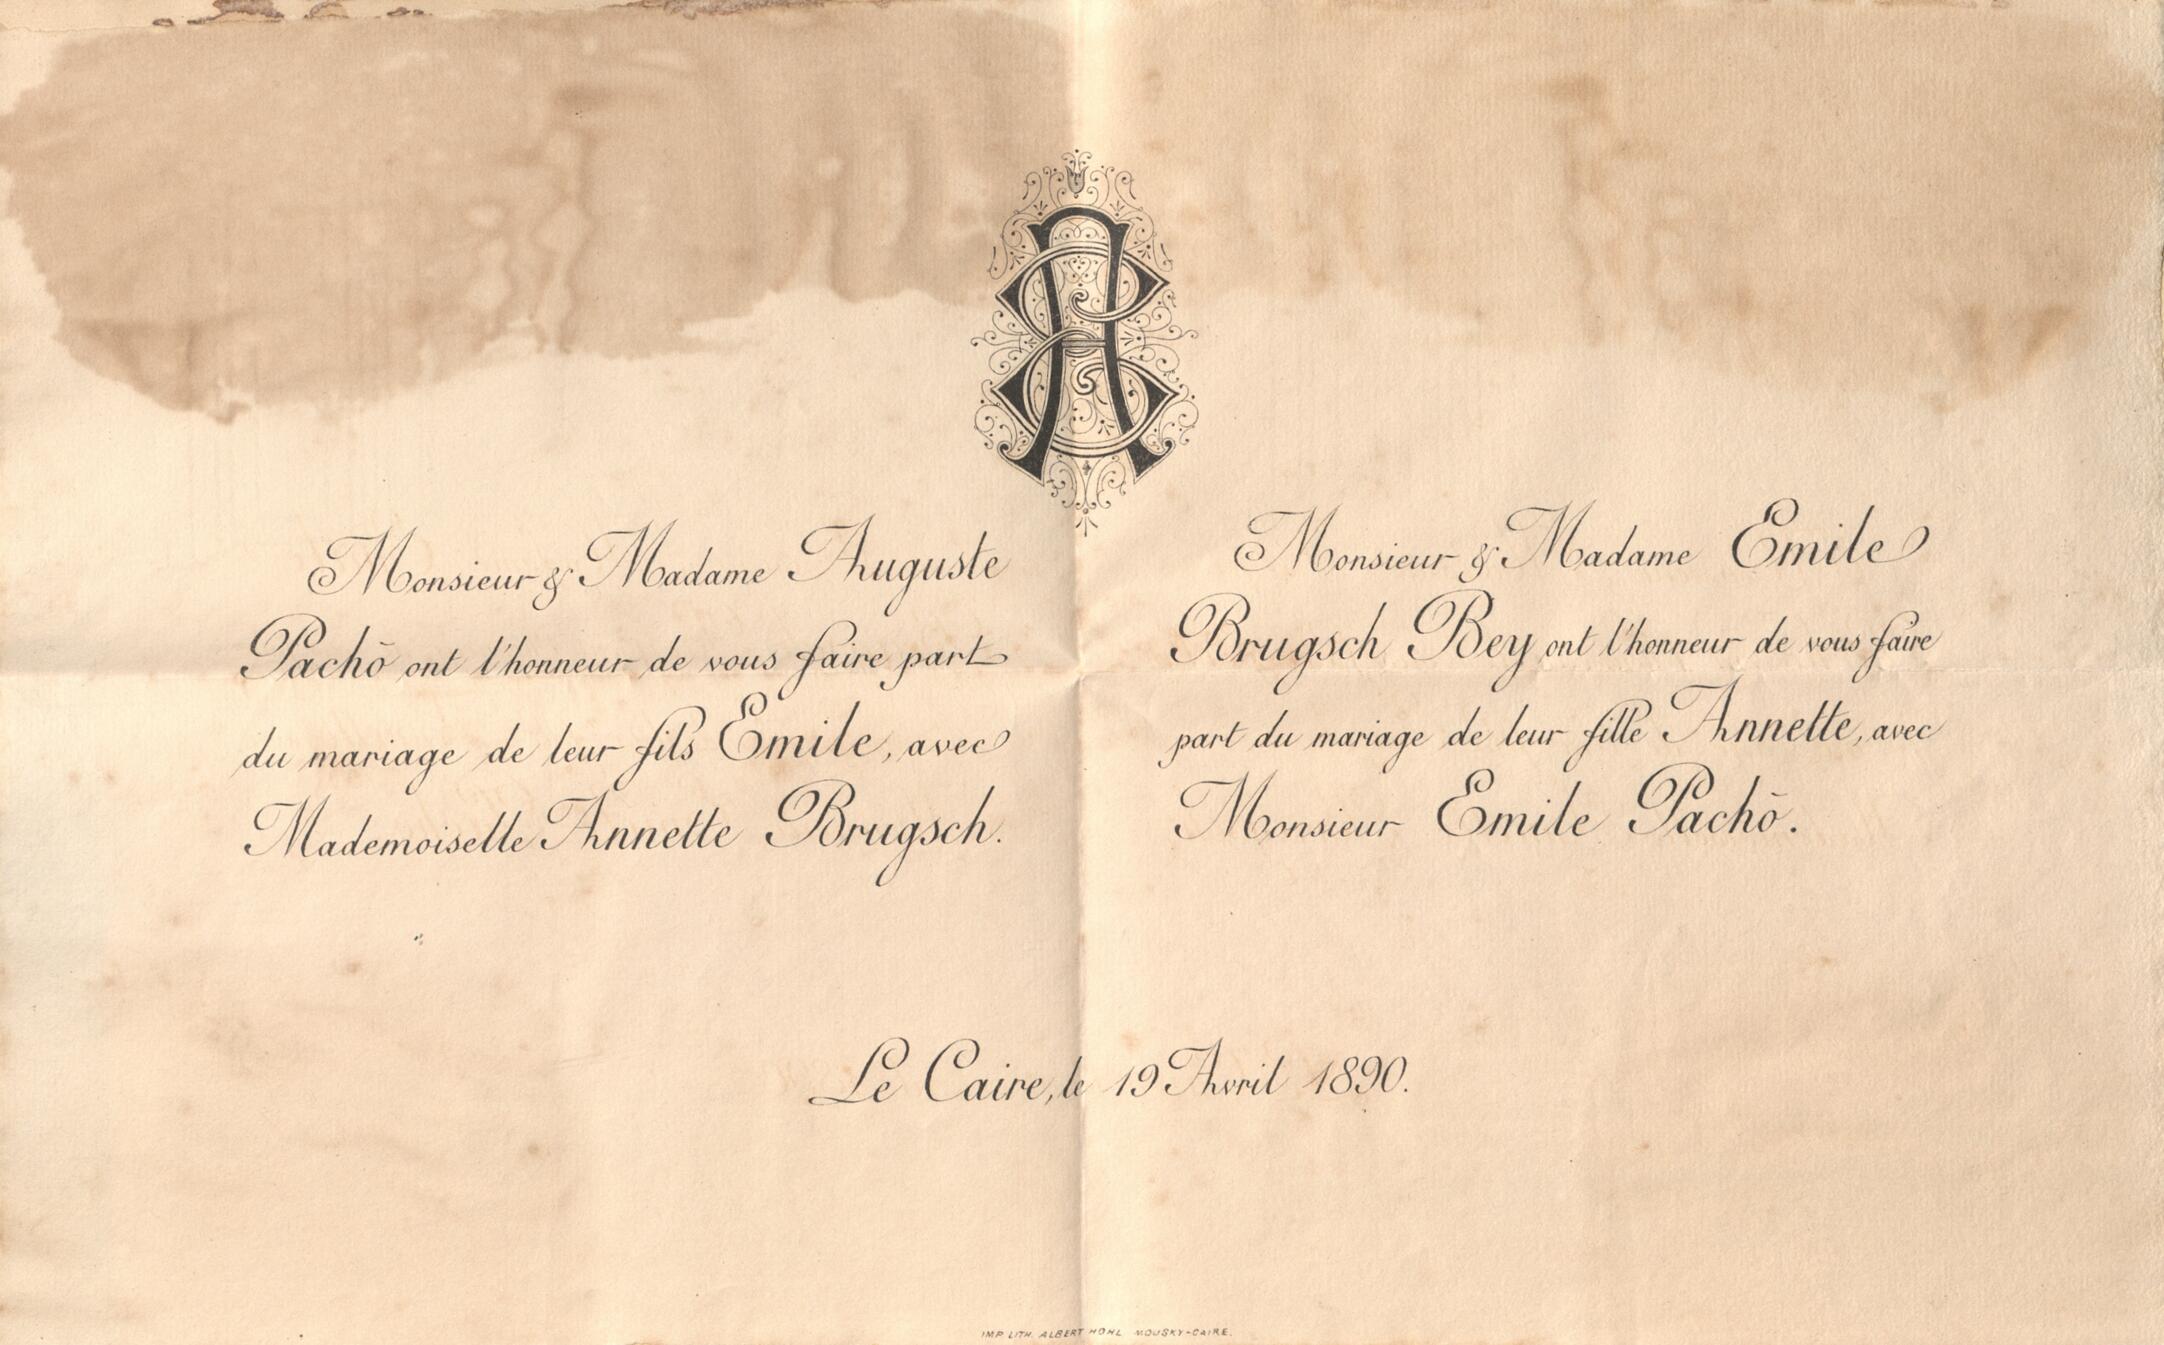 Monsieur & Madame Auguste
Pachō ont l'honneur de vous faire part
du mariage de leur fils Emile, avec
Mademoiselle Annette Brugsch.
Monsieur & Madame Emile
Brugsch Bey ont l'honneur de vous faire
part du mariage de leur fille Annette, avec
Monsieur Emile Pachō.
Le Caire, le 19 Avril 1890.
IMP. LITH. ALBERT HOHL MOUSKY-CAIRE.